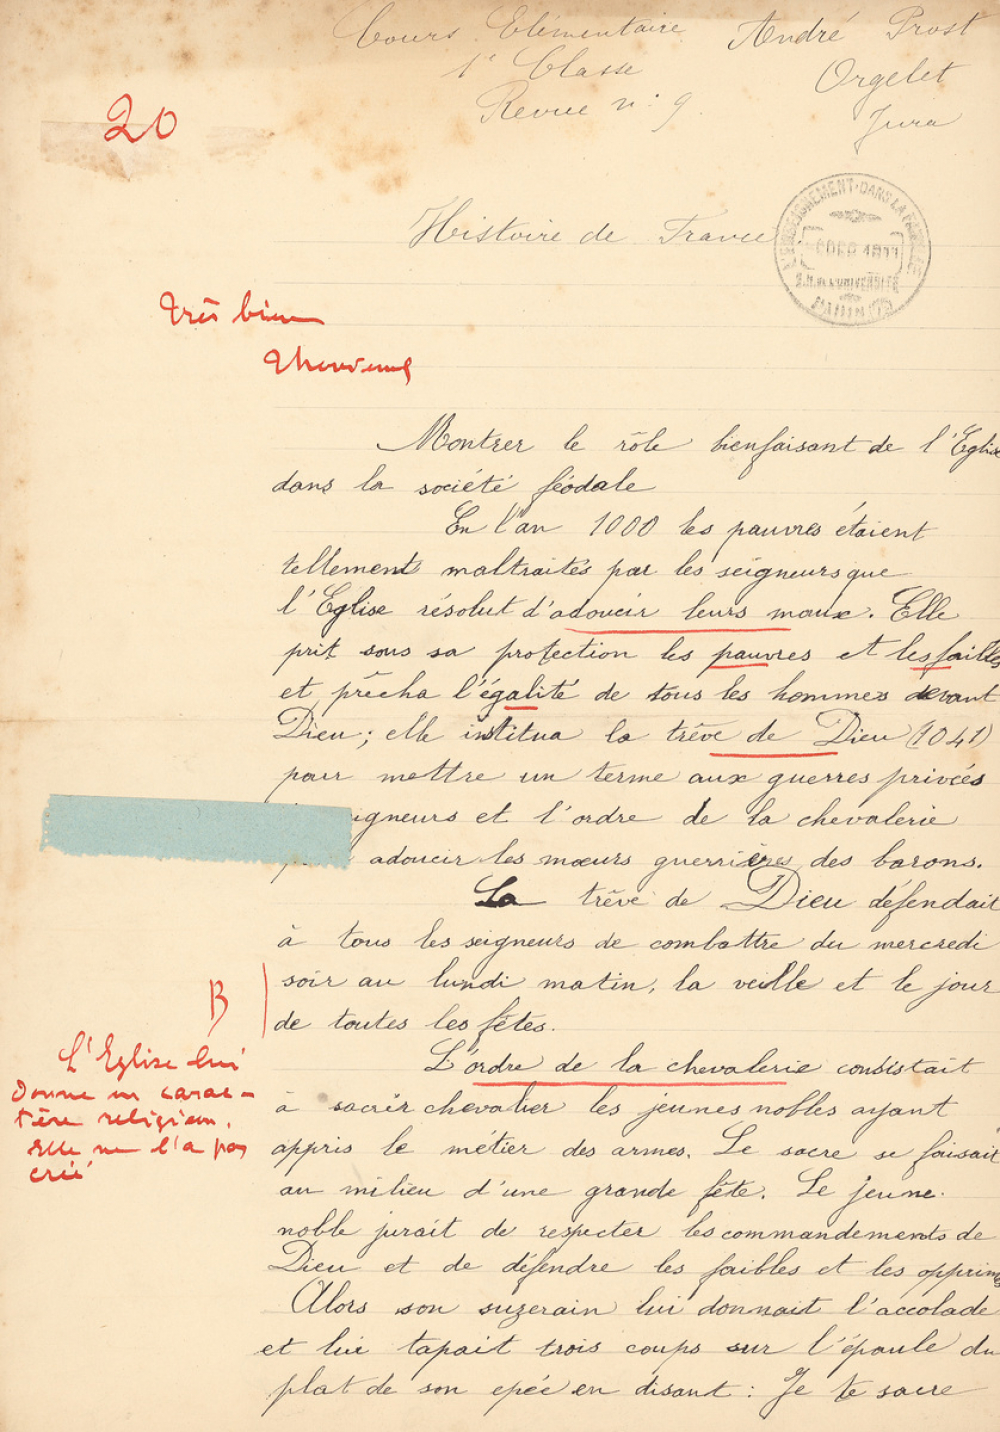 Cours Elémentaire André Prost
1e Classe Orgelet
Revue n: 9. Jura
20
Histoire de France
L'ENSEIGNEMENT DANS LA FAMILLE
Très bien
Montrer le rôle bienfaisant de l'Eglise
dans la société féodale
En l'an 1000 les pauvres étaient
tellement maltraités par les seigneurs que
l'Eglise résolut d'adoucir leurs maux. Elle
prit sous sa protection les pauvres et les faibles
et prêcha l'égalité de tous les hommes devant
Dieu; elle institua la trêve de Dieu (1041)
pour mettre un terme aux guerres privées
igneurs et l'ordre de la chevalerie
adoucir les mœurs guerrières des barons.
La trêve de Dieu défendait
à tous les seigneurs de combattre du mercredi
soir au lundi matin, la veille et le jour
de toutes les fêtes.
B
L'Eglise lui
donne un carac-
tère religieux.
Elle ne l'a pas
créé
L'ordre de la chevalerie consistait
à sacrer chevalier les jeunes nobles ayant
appris le métier des armes. Le sacre se faisait
au milieu d'une grande fête. Le jeune
noble jurait de respecter les commandements de
Dieu et de défendre les faibles et les opprimés
Alors son suzerain lui donnait l'accolade
et lui tapait trois coups sur l'épaule du
plat de son epée en disant : Je te sacre